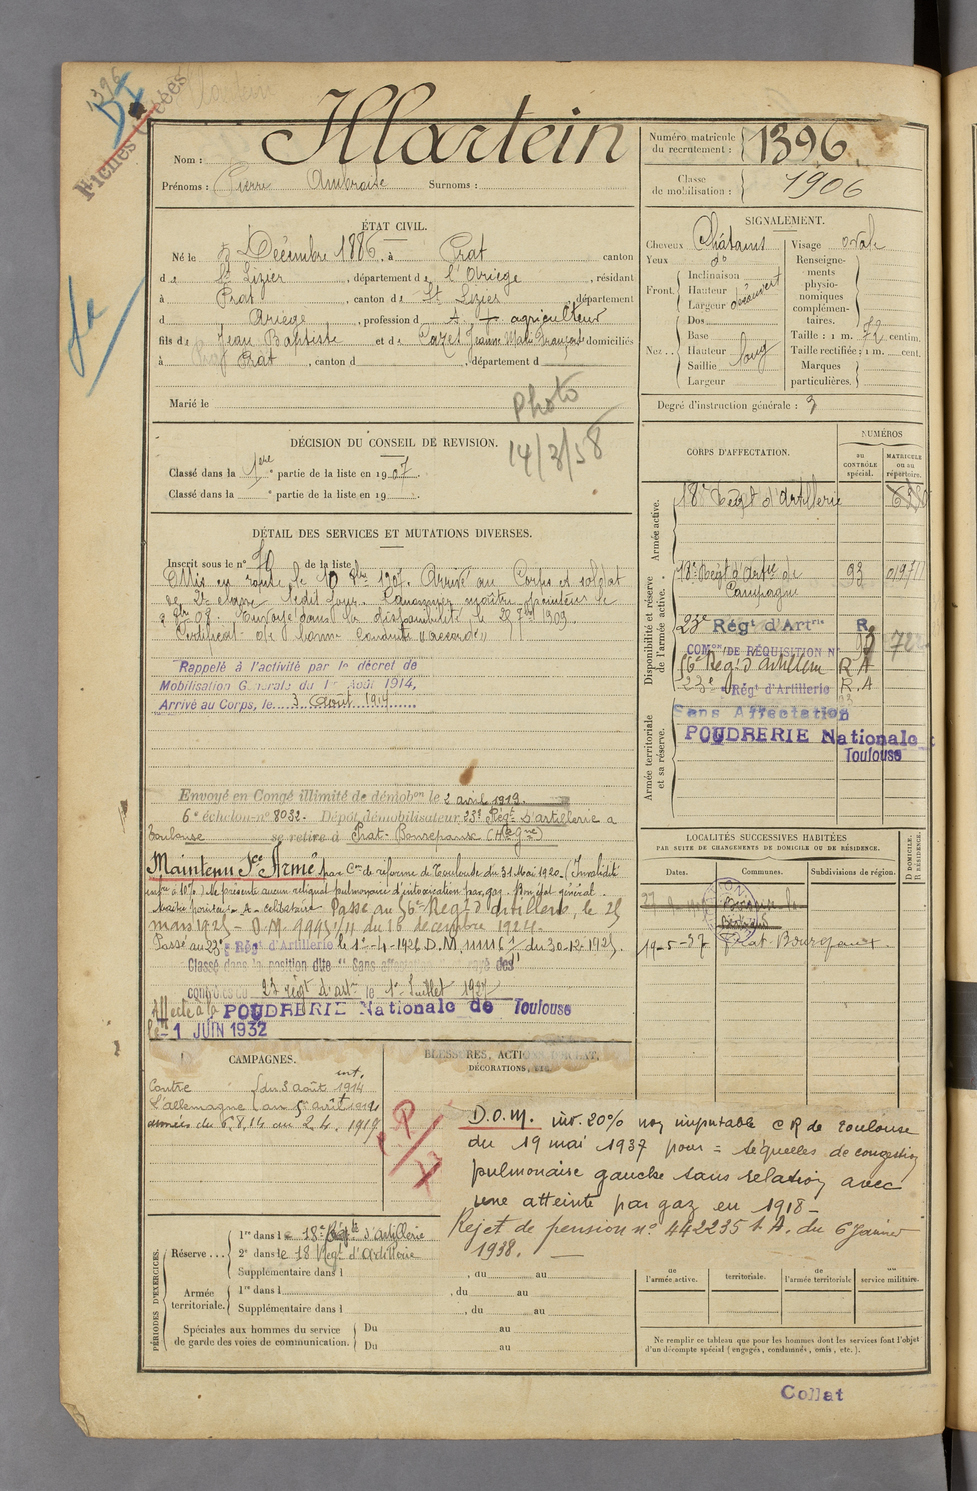 1396
Fiches
Martein
Nom :
Prénoms : Pierre Ambroise Surnoms :
Numéro matricule du recrutement : 1396
Classe de mobilisation : 1906
ÉTAT CIVIL.
Né le 5 Décembre 1886, à Prat canton
de St Lizier, département de l'Ariège, résidant
à Prat, canton de St Lizier, département
d Ariège, profession d agriculteur
fils de Jean Baptiste et de Cazes Jeanne Marie Françoise domiciliés
à Prat, canton d , département d
Marié le
Photo
14/3/58
SIGNALEMENT.
Cheveux Châtains
Yeux do
Front. Inclinaison
Hauteur
Largeur découvert
Nez... Dos
Base
Hauteur long
Saillie
Largeur
Visage ovale
Renseignements physionomiques complémentaires.
Taille : 1 m. 72 centim.
Taille rectifiée : 1 m. cent.
Marques particulières.
Degré d'instruction générale : 3
DÉCISION DU CONSEIL DE REVISION.
Classé dans la 1ère partie de la liste en 1907.
Classé dans la ° partie de la liste en 19 .
DÉTAIL DES SERVICES ET MUTATIONS DIVERSES.
Inscrit sous le n° de la liste
Mis en route le 10 8bre 1907. Arrivé au Corps et soldat
de 2e classe ledit jour. Canonnier maître pointeur le
Envoyé dans la disponibilité le 25 7bre 1909.
Certificat de bonne conduite "accordé"
Rappelé à l'activité par le décret de
Mobilisation Générale du 1er Août 1914,
Arrivé au Corps, le 3 Août 1914
Envoyé en Congé illimité de démobon le 2 avril 1919.
6e échelon n° 8032. Dépôt démobilisateur 23e Régt d'artillerie a
Toulouse se retire à Prat-Bonrepaux (Hte Gne)
Maintenu Sce Armé par Con de réforme de Toulouse du 31 Mai 1920 - (Invalidité
infre à 10%) Ne présente aucun reliquat pulmonaire d'intoxication par gaz. Bon état général.
Maître pointeur - A - célibataire Passé au 56e Regt d'artillerie, le 25
mars 1925 - D.M. 9995 1/11 du 16 décembre 1924.
Passé au 23e Régt d'Artillerie le 1er-4-1926 D.M. du 30-12-1925.
Classé dans la position dite "Sans affectation rayé des
contrôles du 23 régt d'artie le 1er Juillet 1927
Affecté à la POUDRERIE Nationale de Toulouse
le -1 JUIN 1932
CORPS D'AFFECTATION.
NUMÉROS
au CONTRÔLE spécial.
MATRICULE ou au répertoire.
Armée active.
18e Regt d'Artillerie
Disponibilité et réserve de l'armée active.
18e Regt d'Artie de Campagne 93 01971
23e Régt d'Artrie R.
COMon DE RÉQUISITION N° 93 722
56e Regt d'artillerie R A
23e Régt d'Artillerie R.A
Armée territoriale et sa réserve.
Sans Affectation
POUDRERIE Nationale
Toulouse
LOCALITÉS SUCCESSIVES HABITÉES
PAR SUITE DE CHANGEMENTS DE DOMICILE OU DE RÉSIDENCE.
Dates. Communes. Subdivisions de région. D DOMICILE. R RÉSIDENCE.
19-5-37 Prat-Bonrepaux.
CAMPAGNES.
Contre l'allemagne du 3 août 1914
BLESSURES, ACTIONS D'ÉCLAT,
DÉCORATIONS, ETC.
D.O.M. inv. 20% non imputable CR de Toulouse
du 19 mai 1937 pour = séquelles de congestion
pulmonaire gauche sans relation avec
une atteinte par gaz en 1918 -
Rejet de pension n° 442235 t. A. du 6 Janvier
1938. —
PÉRIODES D'EXERCICES.
Réserve... 1re dans le 18e Régt d'artillerie
2e dans le 18 Regt d'artillerie
Supplémentaire dans l , du au
Armée territoriale. 1re dans l , du au
Supplémentaire dans l , du au
Spéciales aux hommes du service de garde des voies de communication. Du au
Du au
de l'armée active.
territoriale.
de l'armée territoriale
service militaire.
Ne remplir ce tableau que pour les hommes dont les services font l'objet
d'un décompte spécial (engagés, condamnés, omis, etc.).
Collat